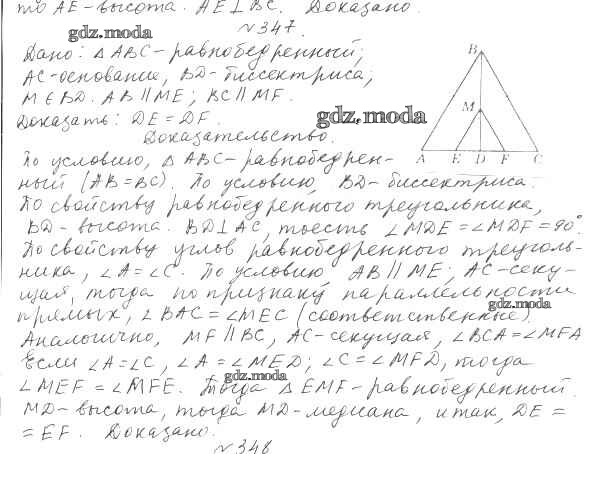 то АЕ-высота. АЕ⊥ВС. Доказано.
№347.
gdz.moda
Дано: △АВС-равнобедренный;
АС-основание, BD-биссектриса;
М∈BD. АВ∥МЕ; ВС∥MF.
Доказать: DE=DF.
gdz.moda
Доказательство.
B
M
A E D F C
По условию, △АВС-равнобедрен-
ный (АВ=ВС). По условию, BD-биссектриса.
По свойству равнобедренного треугольника,
BD-высота. BD⊥АС, тоесть ∠MDE=∠MDF=90°.
По свойству углов равнобедренного треуголь-
ника, ∠А=∠С. По условию АВ∥МЕ; АС-секу-
щая, тогда по признаку параллельности
gdz.moda
прямых, ∠ВАС=∠МЕС (соответственные).
Аналогично, MF∥ВС, АС-секущая, ∠ВСА=∠MFA
Если ∠А=∠С, ∠А=∠MED; ∠С=∠MFD, тогда
gdz.moda
∠MEF=∠MFE. Тогда △EMF-равнобедренный.
MD-высота, тогда MD-медиана, итак, DE=
=EF. Доказано.
№348